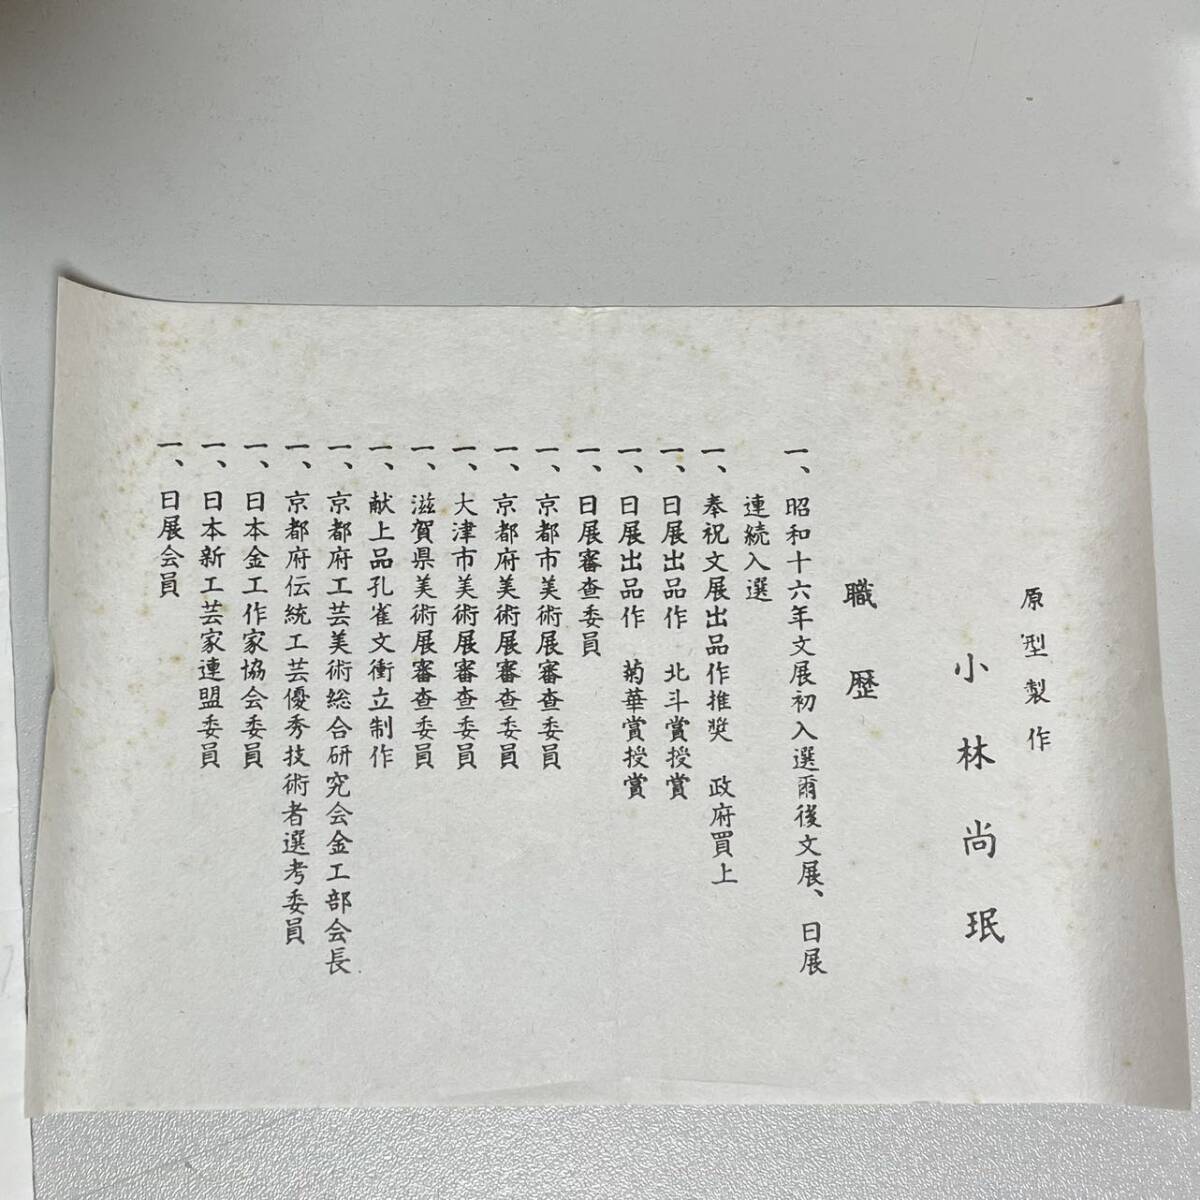 原型製作
小林尚珉
職歴
一、昭和十六年文展初入選爾後文展、日展
連続入選
一、奉祝文展出品作推奨 政府買上
一、日展出品作 北斗賞授賞
一、日展出品作 菊華賞授賞
一、日展審査委員
一、京都市美術展審査委員
一、京都府美術展審査委員
一、大津市美術展審査委員
一、滋賀県美術展審査委員
一、献上品孔雀文衝立制作
一、京都府工芸美術総合研究会金工部会長
一、京都府伝統工芸優秀技術者選考委員
一、日本金工作家協会委員
一、日本新工芸家連盟委員
一、日展会員